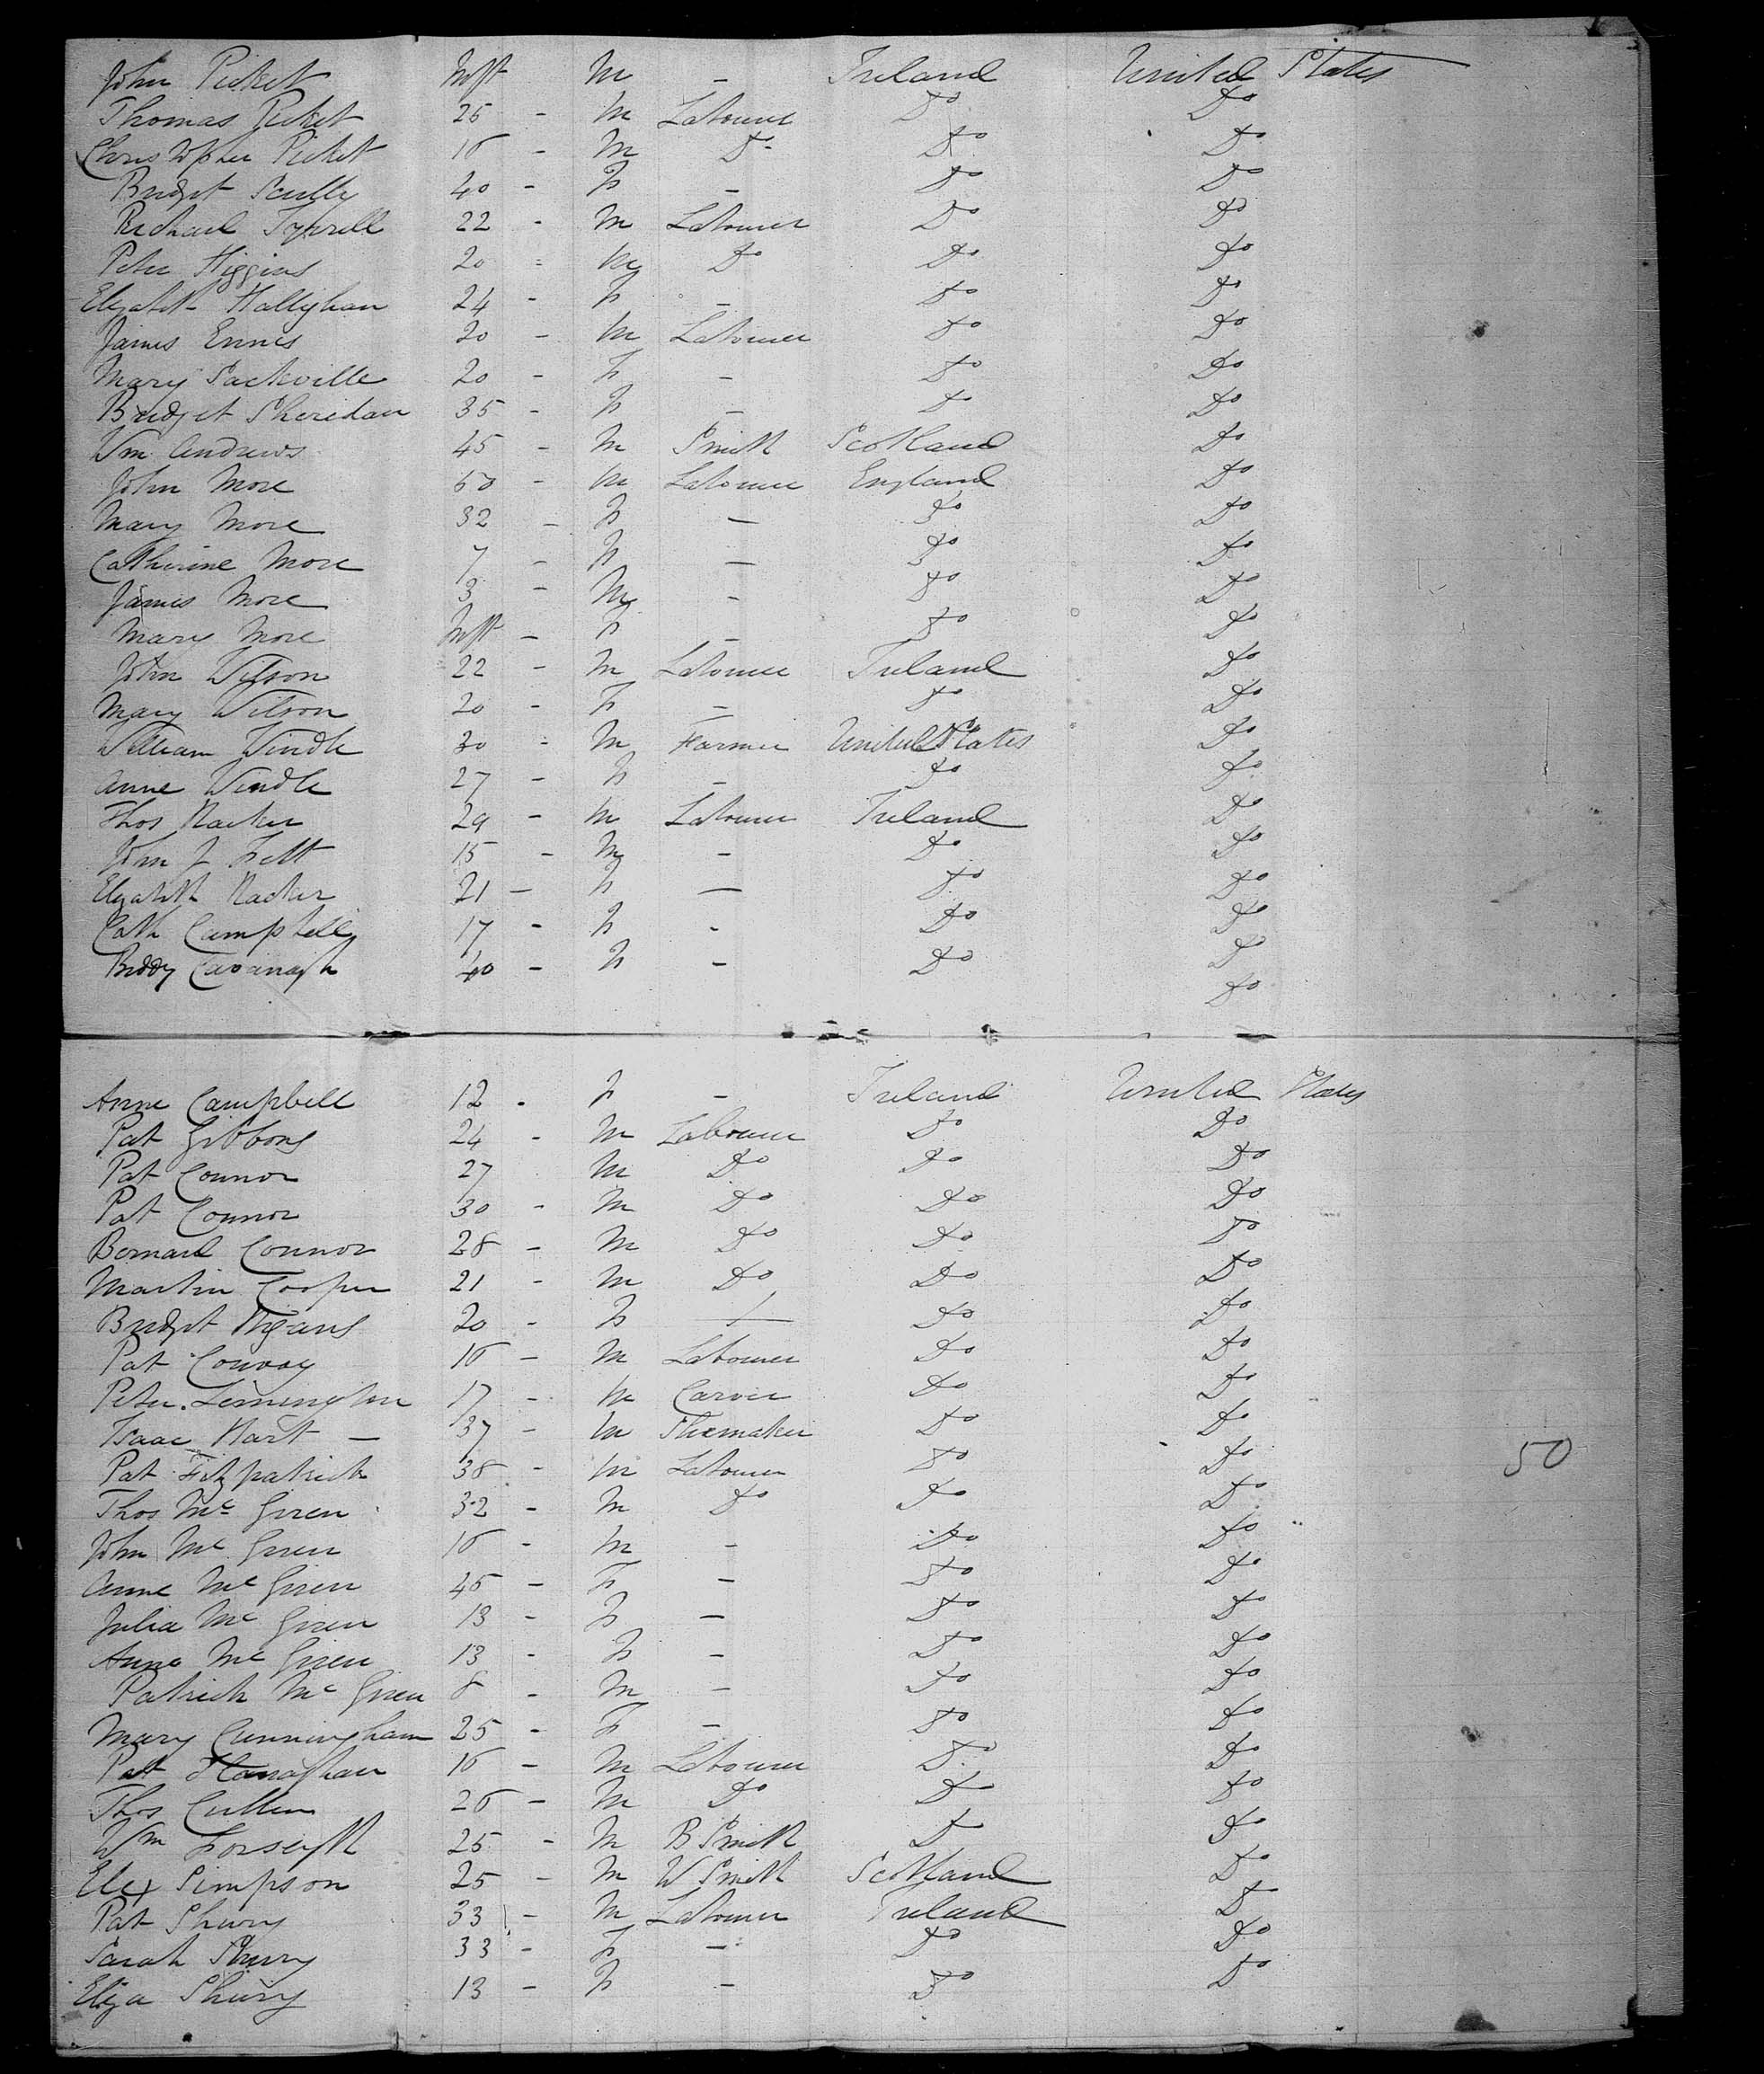 John Picket Inft M - Ireland United States
Thomas Picket 25 - M Labourer Do Do
Christopher Picket 16 - M Do Do Do
Bridget Scully 40 - F - Do Do
Richard Tyrrell 22 - M Labourer Do Do
Peter Higgins 20 - M Do Do Do
Elizabeth Hallighan 24 - F - Do Do
James Ennis 20 - M Labourer Do Do
Mary Sackville 20 - F - Do Do
Bridget Sheridan 35 - F - Do Do
Wm Andrews 45 - M Smith Scotland Do
John More 50 - M Labourer England Do
Mary More 32 - F - Do Do
Catherine More 7 - F - Do Do
James More 3 - M - Do Do
Mary More Inft - F - Do Do
John Wilson 22 - M Labourer Ireland Do
Mary Wilson 20 - F - Do Do
William Windle 30 - M Farmer United States Do
Anne Windle 27 - F - Do Do
Thos 29 - M Labourer Ireland Do
John J 15 - M - Do Do
Elizabeth 21 - F - Do Do
Cath Campbell 17 - F - Do Do
Biddy Cavanagh 40 - F - Do Do
Do
Anne Campbell 12 - F - Ireland United States
Pat Gibbons 24 - M Labourer Do Do
Pat Connor 27 M Do Do Do
Pat Connor 30 - M Do Do Do
Bernard Connor 28 - M Do Do Do
Martin Cooper 21 - M Do Do Do
Bridget 20 - F - Do Do
Pat Conway 16 - M Labourer Do Do
Peter Lennington 17 - M Carver Do Do
Isaac Hart - 37 - M Shoemaker Do Do
Pat Fitzpatrick 38 - M Labourer Do Do
Thos Mc Giren 32 - M Do Do Do
John Mc Giren 16 - M - Do Do
Anne Mc Giren 45 - F - Do Do
Julia Mc Giren 13 - F - Do Do
Anne Mc Giren 13 - F - Do Do
Patrick Mc Giren 8 - M - Do Do
Mary Cunningham 25 - F - Do Do
Pat Flanaghan 16 - M Labourer Do Do
Thos Cullen 26 - M Do Do Do
Wm Forsyth 25 - M B Smith Do Do
Elex Simpson 25 - M W Smith Scotland Do
Pat Shury 33 - M Labourer Ireland Do
Sarah Shury 33 - F - Do Do
Eliza Shury 13 - F - Do Do
50